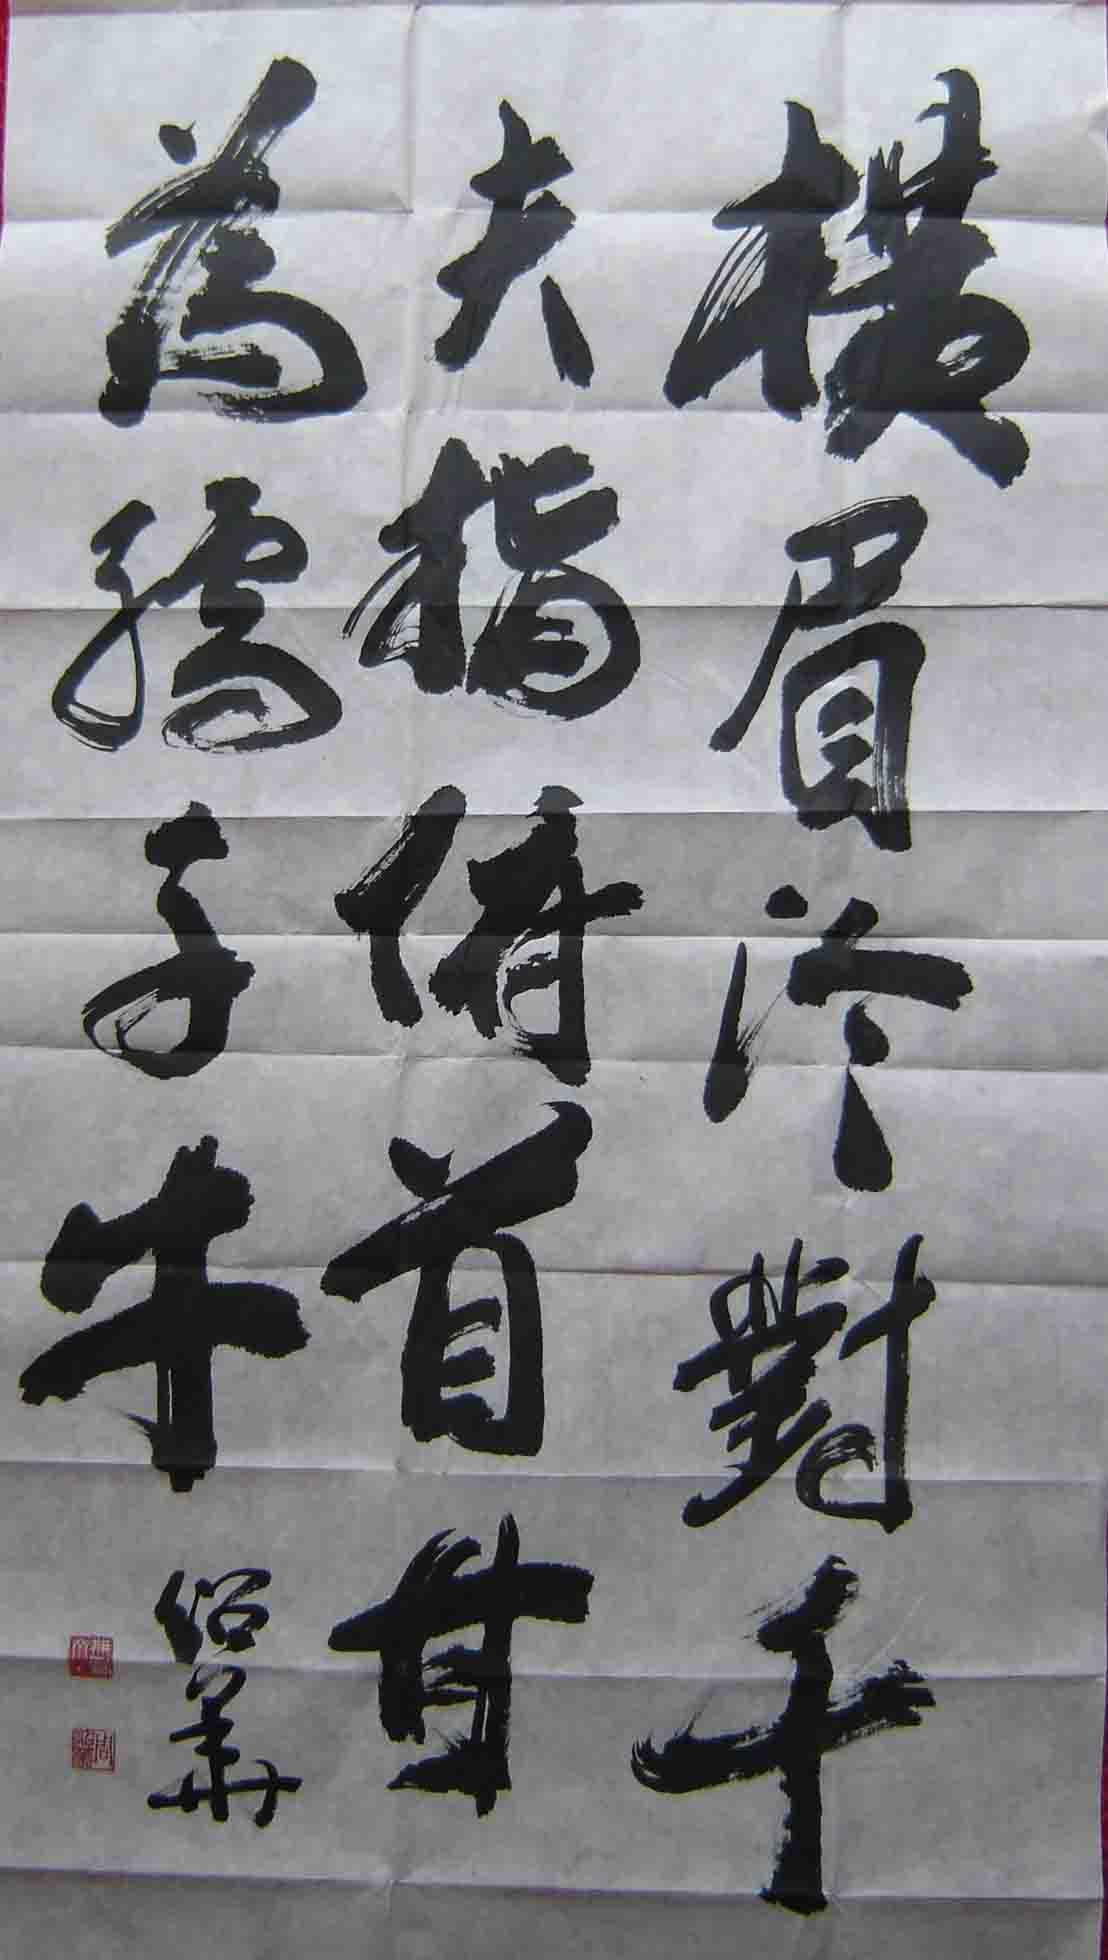 橫眉冷對千
夫指俯首甘
為孺子牛
绍華